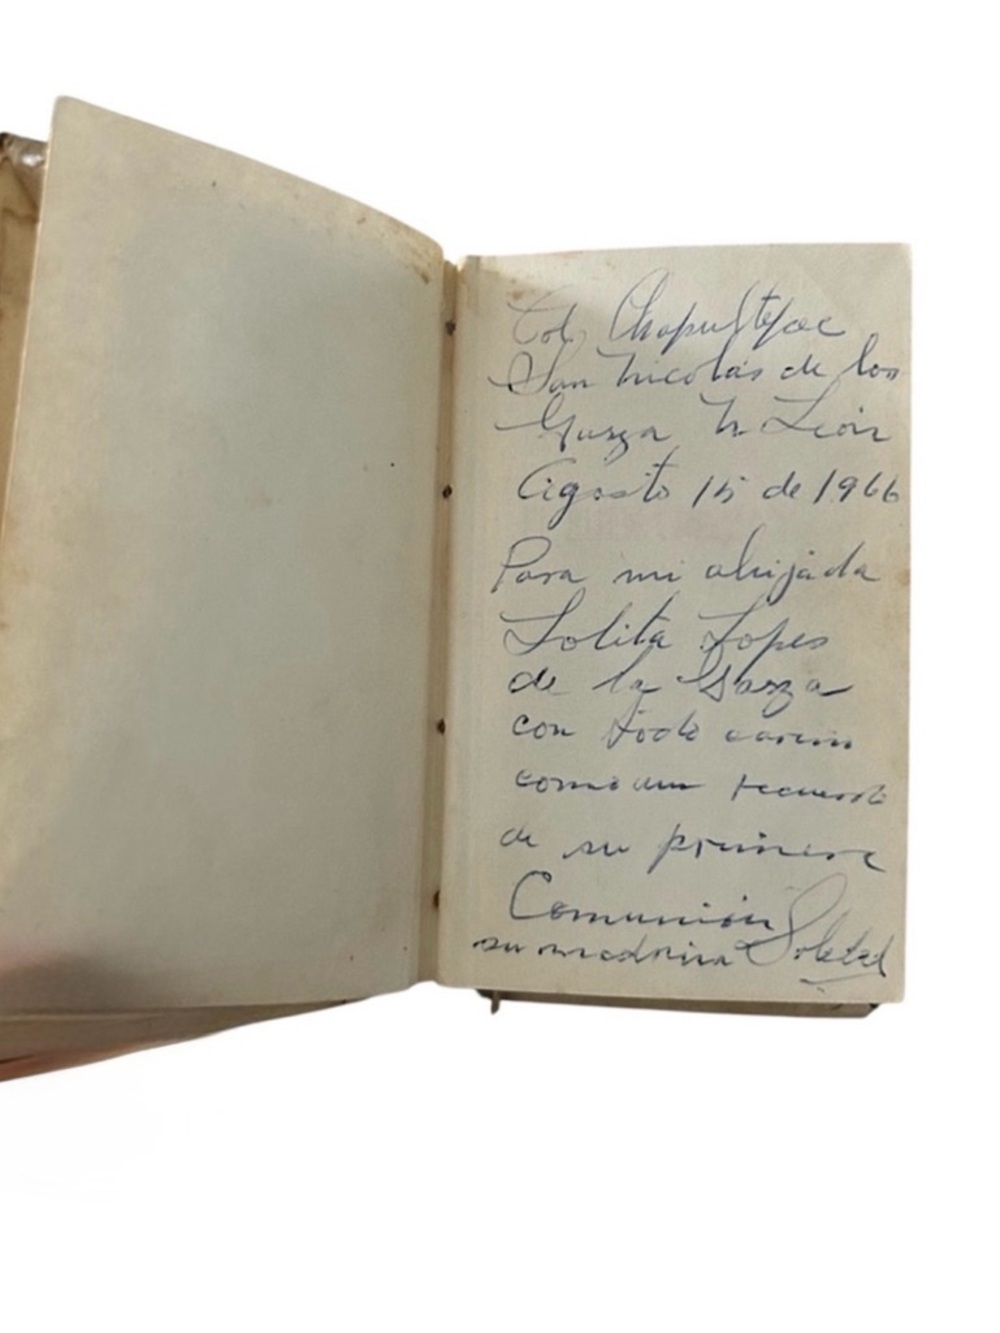 Col. Chapultepec
San Nicolás de los
Garza N. León
Agosto 15 de 1966
Para mi ahijada
Lolita Lopes
de la Garza
con todo cariño
como un recuerdo
de su primera
Comunión
su madrina Soledad